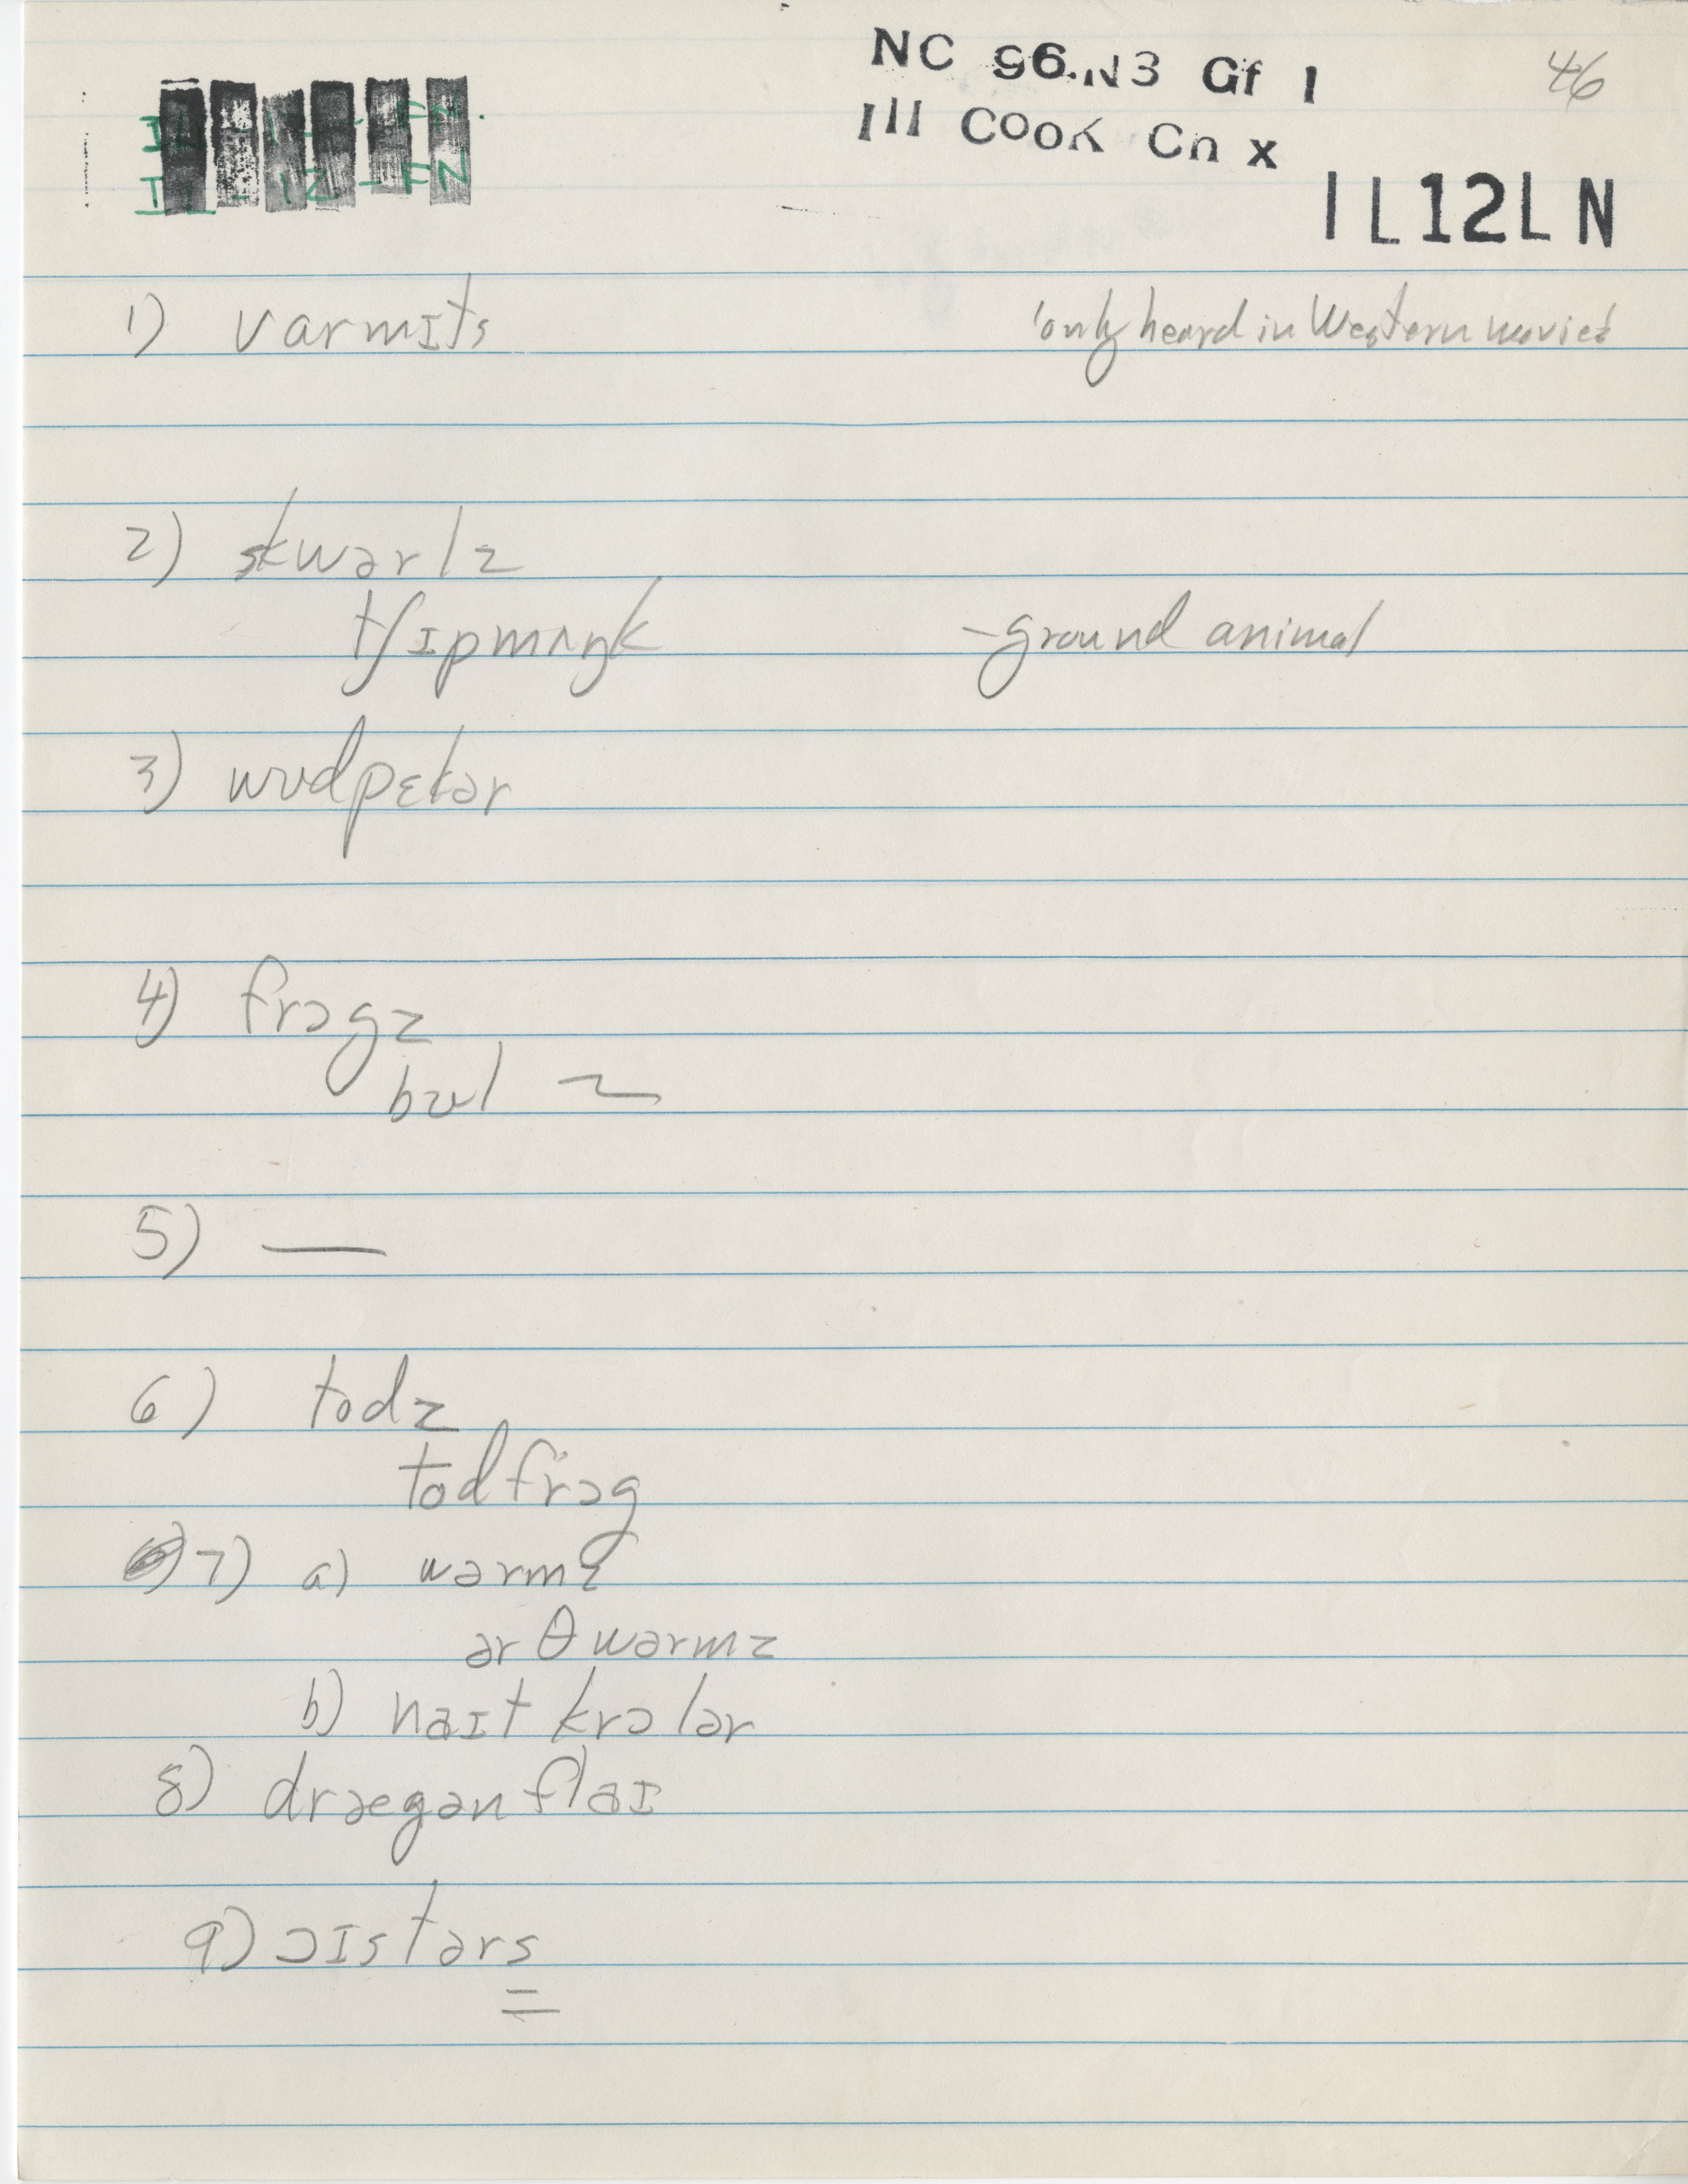 NC 96.N3 Gf 1
46
Ill Cook Cn x
IL12LN
1) varmɪts 'only heard in Western movies'
2) skwərlz
tʃɪpmʌŋk - ground animal
3) wʊdpɛkər
4) frɔgz
bʊl ~
5) —
6) todz
todfrɔg
7) a) wərmz
ərθwərmz
b) naɪt krɔlər
8) dræegənflaɪ
9) ɔɪstərs